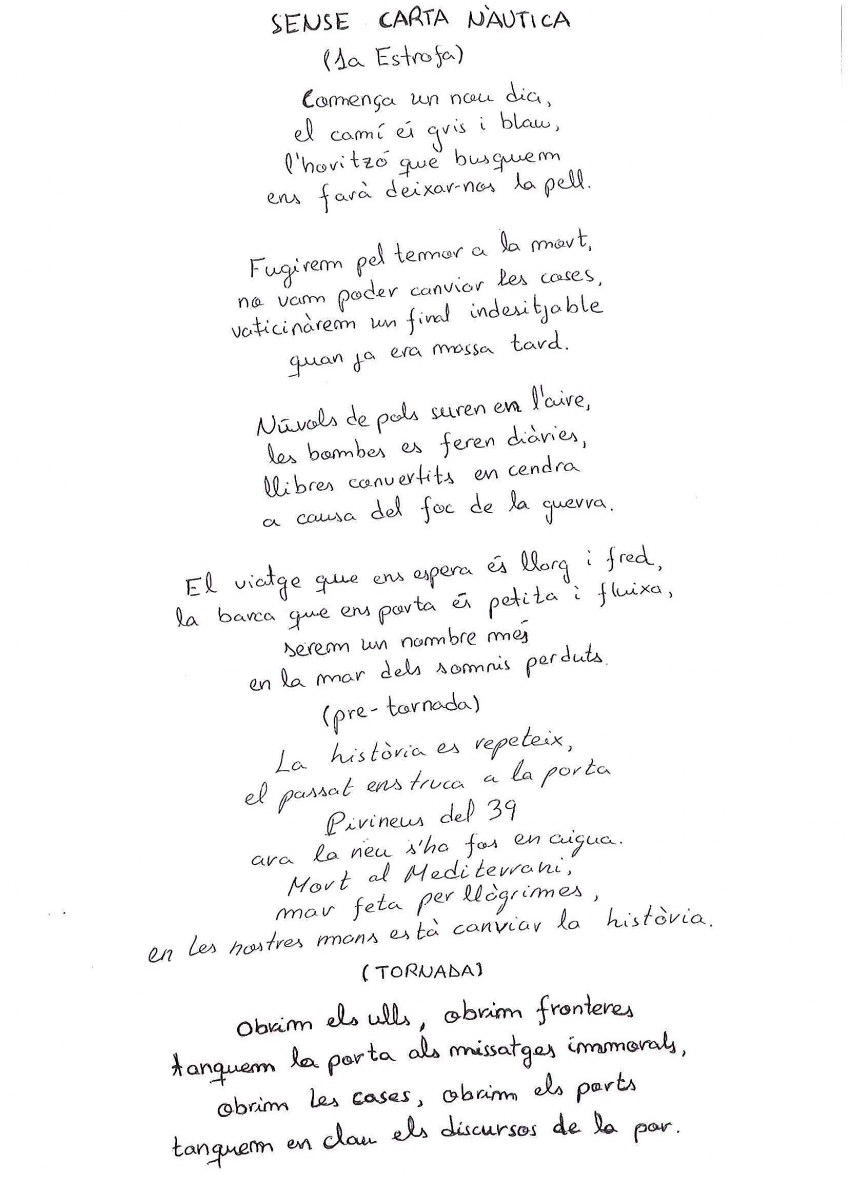 SENSE CARTA NÀUTICA
(1a Estrofa)
Comença un nou dia,
el camí és gris i blau,
l'horitzó que busquem
ens farà deixar-nos la pell.
Fugirem pel temor a la mort,
no vam poder canviar les coses,
vaticinàrem un final indesitjable
quan ja era massa tard.
Núvols de pols suren en l'aire,
les bombes es feren diàries,
llibres convertits en cendra
a causa del foc de la guerra.
El viatge que ens espera és llarg i fred,
la barca que ens porta és petita i fluixa,
serem un nombre més
en la mar dels somnis perduts.
(pre-tornada)
La història es repeteix,
el passat ens truca a la porta
Pirineus del 39
ara la neu s'ha fos en aigua.
Mort al Mediterrani,
mar feta per llàgrimes,
en les nostres mans està canviar la història.
(TORNADA)
Obrim els ulls, obrim fronteres
tanquem la porta als missatges immorals,
obrim les cases, obrim els ports
tanquem en clau els discursos de la por.